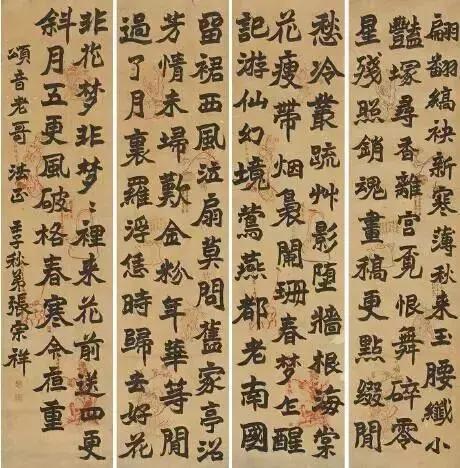 翩翻縞袂新寒薄秋來玉腰纖小
豔塚尋香離宮覓恨舞碎零
星殘照銷魂畫稿更點綴閒
愁冷叢疏艸影墮牆根海棠
花瘦帶烟裊闌珊春夢乍醒
記游仙幻境鶯燕都老南國
留裙西風泣扇莫問舊家亭沼
芳情未埽歎金粉年華等閒
過了月裏羅浮恁時歸去好花
非花梦非梦〻裡来花前送四更
斜月五更風破格春寒今重
頌音老哥 法正 壬子秋弟張宗祥